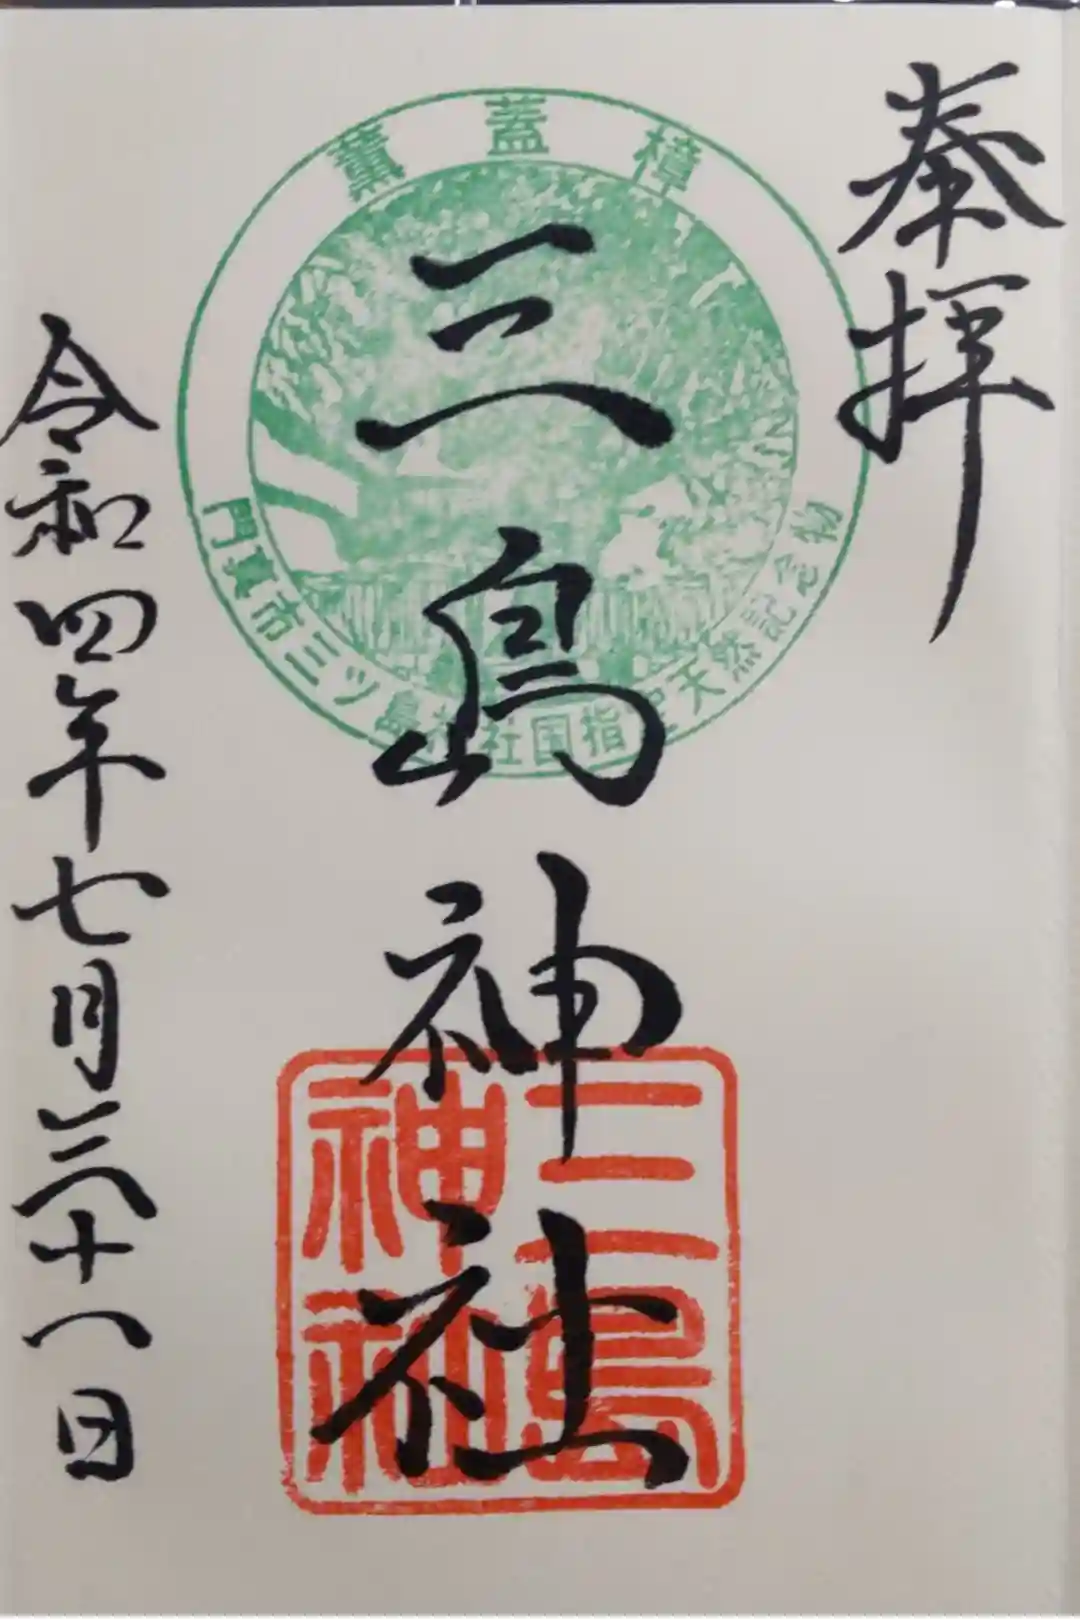 奉拝
薫蓋樟
門真市三ツ島神社国指定天然記念物
三島神社
三島神社
令和四年七月三十一日